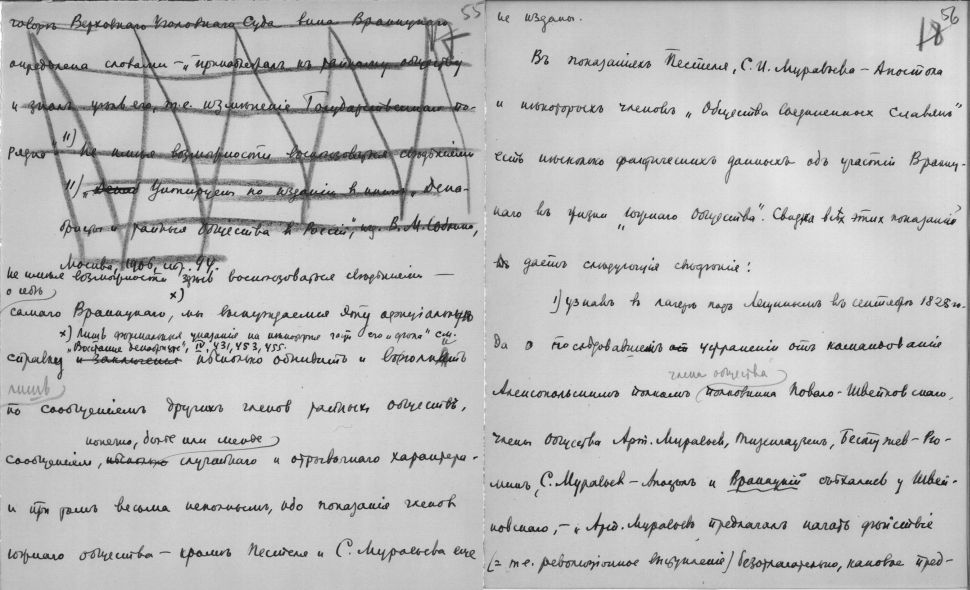 55
17
говоръ Верховнаго Уголовнаго Суда вина Враницкаго
опредѣлена словами – „принадлежалъ къ тайному обществу
и зналъ цѣль его, т.е. измѣненіе Государственнаго по-
рядка" 11) Не имѣя возможности воспользоваться свѣдѣніями
11) Цитируемъ по изданію въ книгѣ „Дека-
бристы и тайныя общества въ Россіи", изд. В. М. Саблина,
Москва, 1906, стр. 94.
Не имѣя возможности здѣсь воспользоваться свѣдѣніями —
о себѣ
самого Враницкаго, мы вынуждаемся эту оффиціальную x)
x) Лишь формальныя указанія на нѣкоторые даты его „дѣла" см.
„Возстаніе декабристовъ", IV, 431, 453, 455.
справку и нѣсколько обновить и восполнить
лишь
по сообщеніямъ другихъ членовъ тайныхъ обществъ,
конечно, болѣе или менѣе
сообщеніямъ, нѣсколько случайнаго и отрывочнаго характера.
и при томъ весьма неполнымъ, ибо показанія членовъ
Южнаго общества – кромѣ Пестеля и С. Муравьева еще
56
18
не изданы.
Въ показаніяхъ Пестеля, С. И. Муравьева – Апостола
и нѣкоторыхъ членовъ „Общества Соединенныхъ Славянъ"
есть нѣсколько фактическихъ данныхъ объ участіи Враниц-
каго въ жизни „Южнаго Общества". Сводка всѣхъ этихъ показаній
даетъ слѣдующія свѣдѣнія:
1) узнавъ въ лагерѣ подъ Лещинымъ въ сентябрѣ 1825 го-
да о послѣдовавшемъ устраненіи отъ командованія
члена общества
Алексопольскимъ полкомъ полковника Повало-Швейковскаго,
члены общества Арт. Муравьевъ, Тизенгаузенъ, Бестужев-Рю-
минъ, С. Муравьев – Апостолъ и Враницкій съѣхались у Швей-
ковскаго, – „Арт. Муравьевъ предлагалъ начать дѣйствіе
(= т.е. революціонное выступленіе) безотлагательно, каковое пред-